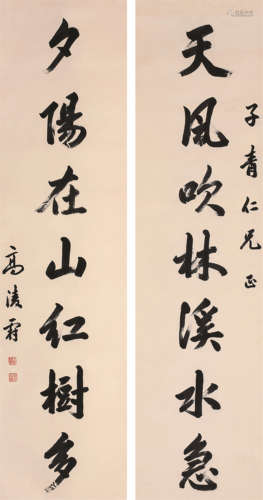 子青仁兄正
天風吹林溪水急
夕陽在山紅樹多
高淩霨